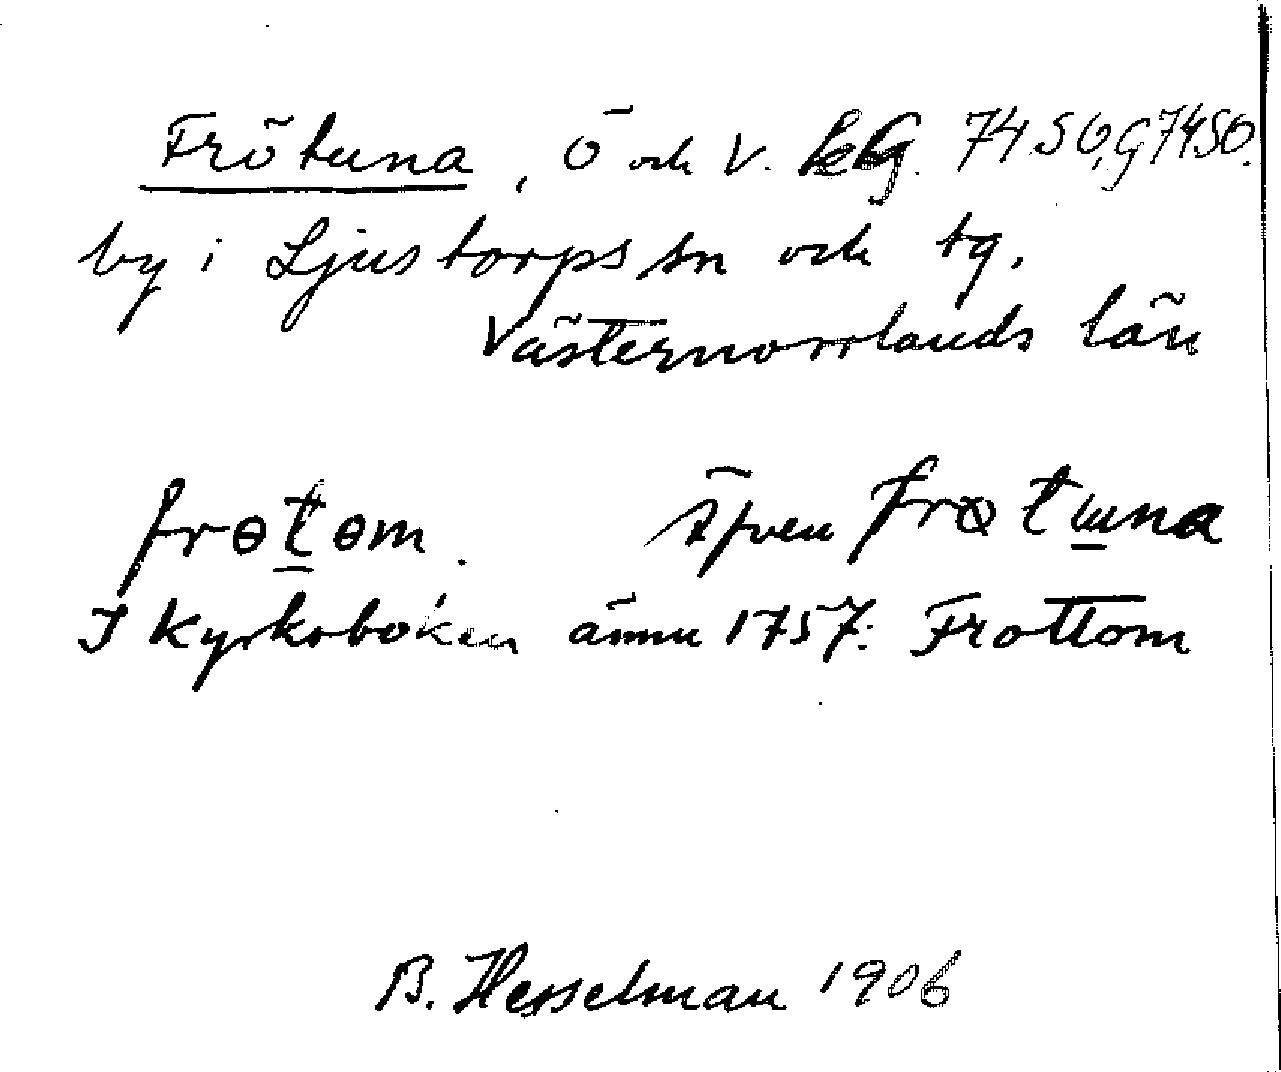 Frötuna, Ö och V. kG. 7450, G7450.
by i Ljustorps sn och tg,
Västernorrlands län
frɵtɵm. Äfven frøtuna
I kyrkoboken ännu 1757: Frottom
B. Hesselman 1906